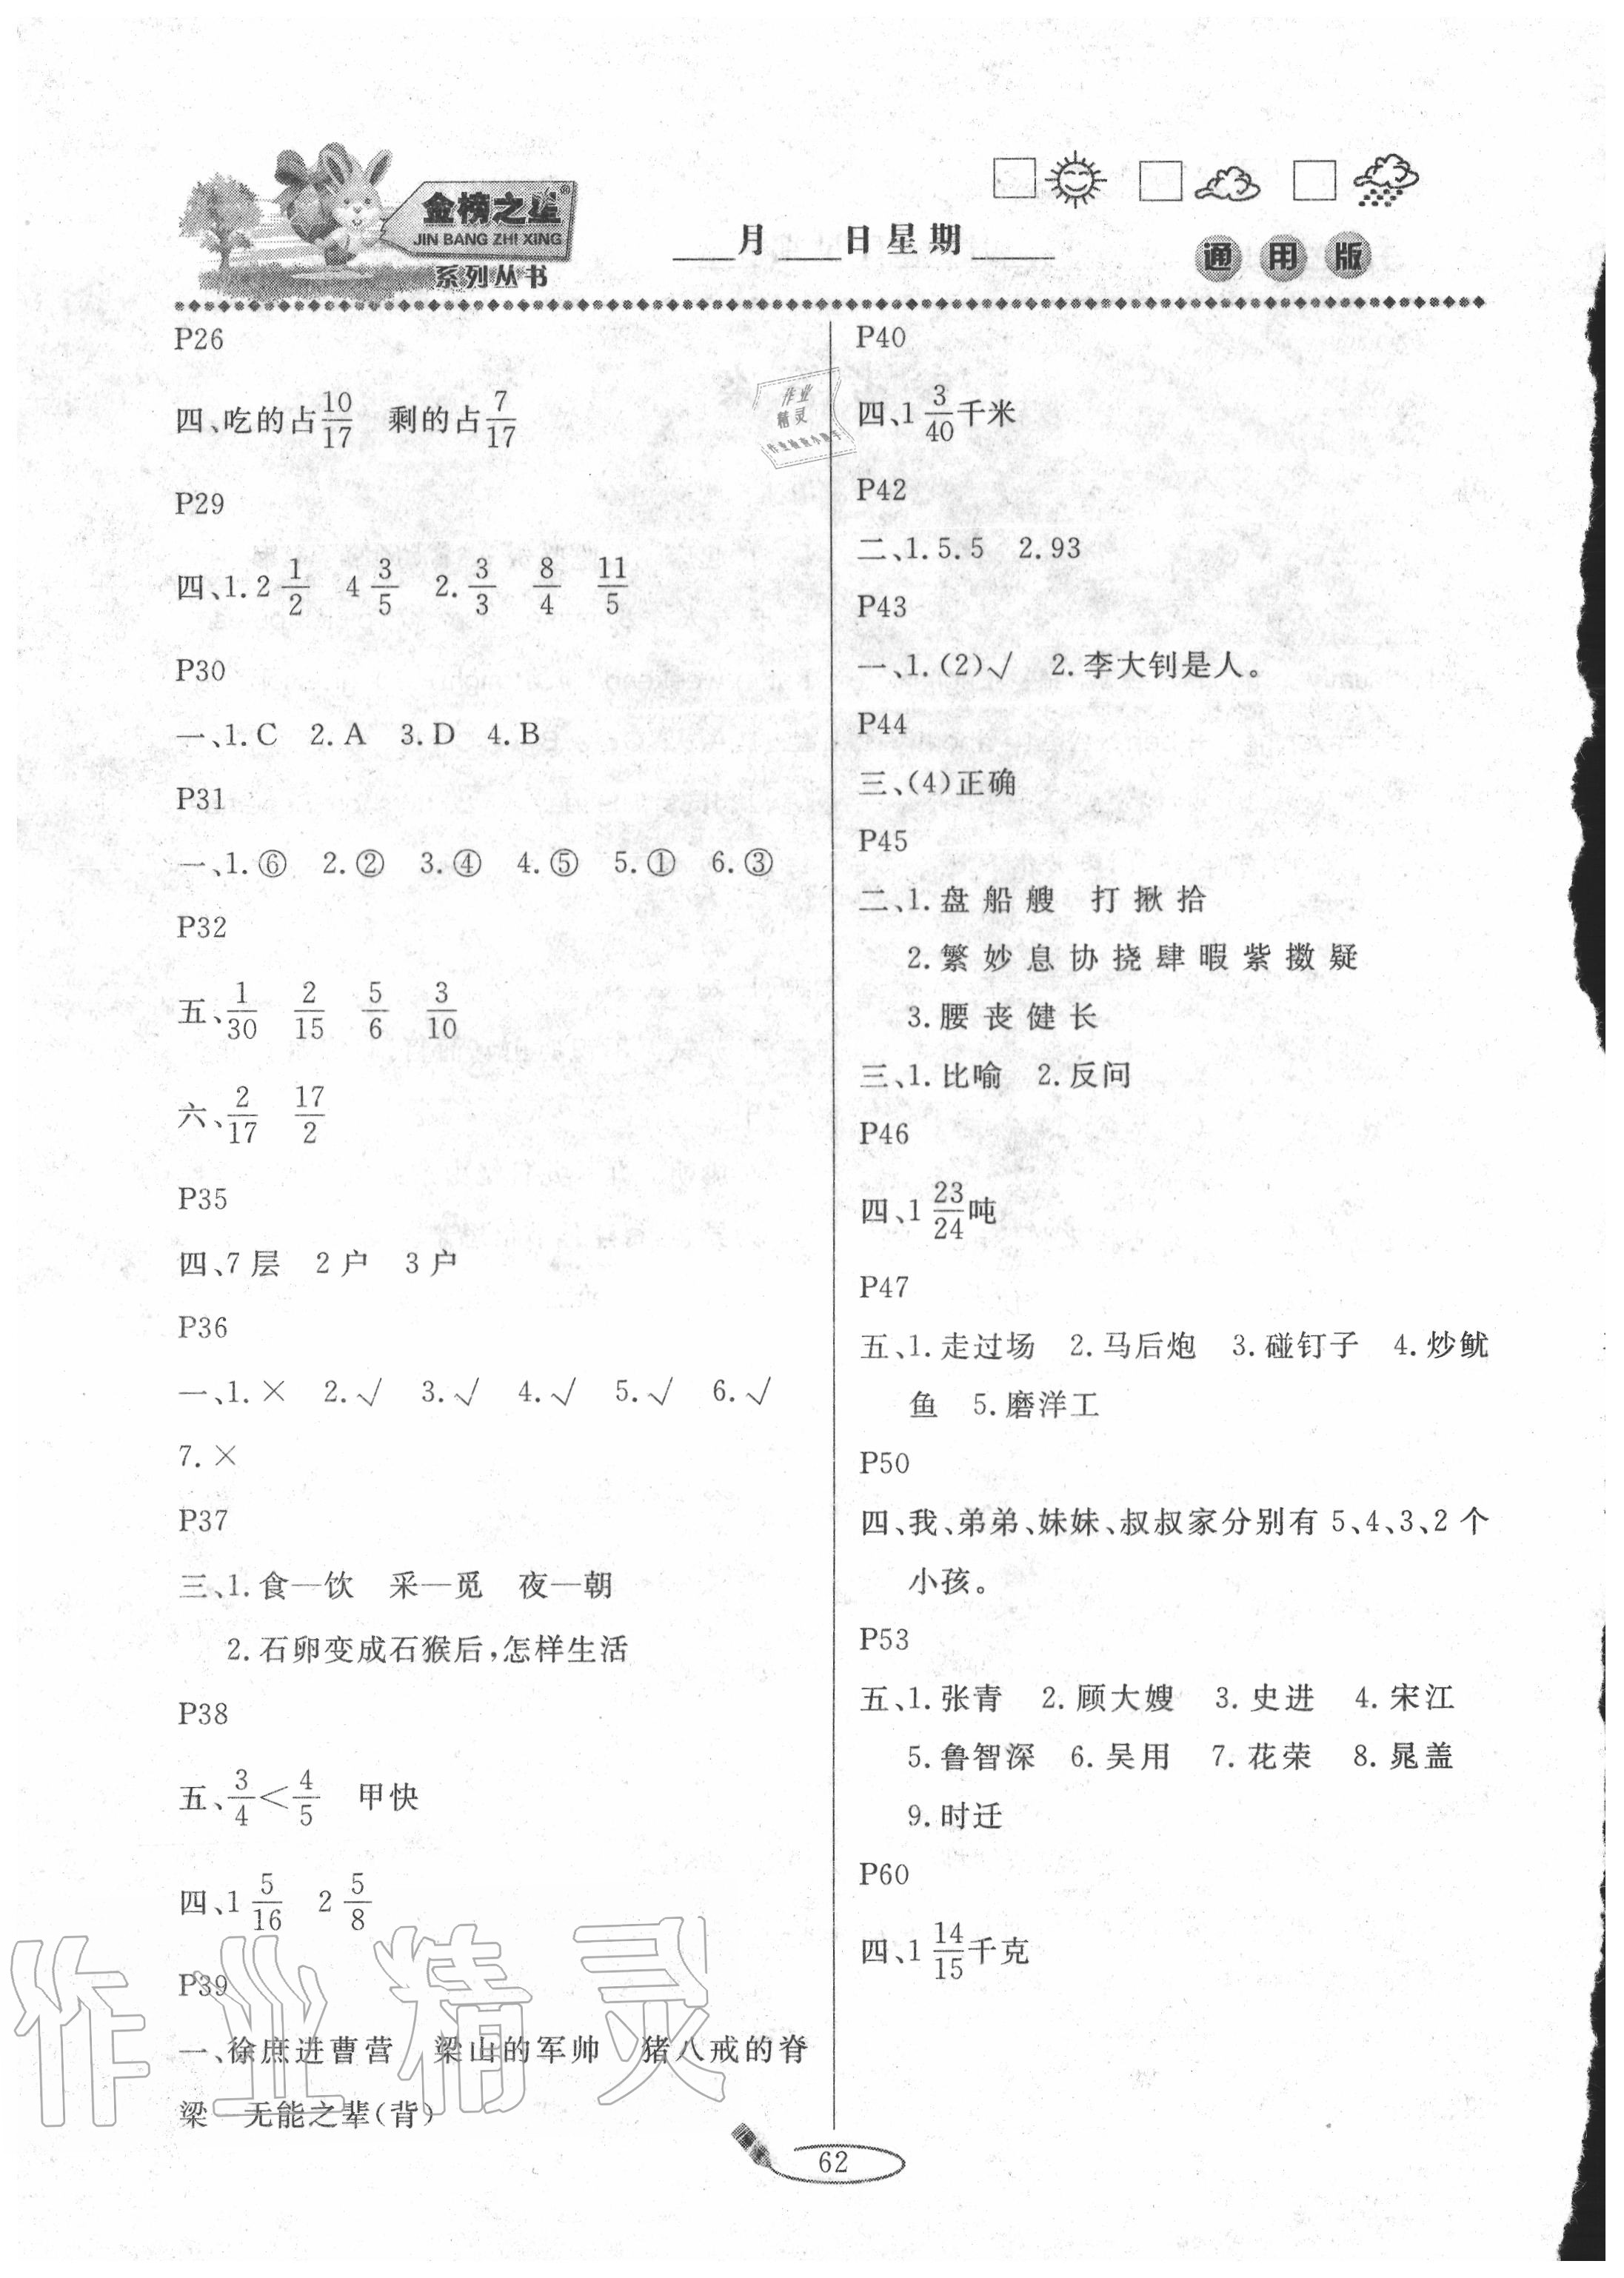 金榜之星®
JIN BANG ZHI XING
系列丛书
___月___日星期____
通用版
P26
四、吃的占10/17 剩的占7/17
P29
四、1. 2 1/2 4 3/5 2. 3/3 8/4 11/5
P30
一、1. C 2. A 3. D 4. B
P31
一、1. ⑥ 2. ② 3. ④ 4. ⑤ 5. ① 6. ③
P32
五、1/30 2/15 5/6 3/10
六、2/17 17/2
P35
四、7 层 2 户 3 户
P36
一、1. × 2. √ 3. √ 4. √ 5. √ 6. √
7. ×
P37
三、1. 食—饮 采—觅 夜—朝
2. 石卵变成石猴后,怎样生活
P38
五、3/4＜4/5 甲快
四、1 5/16 2 5/8
P39
一、徐庶进曹营 梁山的军帅 猪八戒的脊
梁 无能之辈(背)
P40
四、1 3/40千米
P42
二、1. 5. 5 2. 93
P43
一、1. (2)√ 2. 李大钊是人。
P44
三、(4)正确
P45
二、1. 盘 船 艘 打 揪 拾
2. 繁 妙 息 协 挠 肆 暇 紫 擞 疑
3. 腰 丧 健 长
三、1. 比喻 2. 反问
P46
四、1 23/24吨
P47
五、1. 走过场 2. 马后炮 3. 碰钉子 4. 炒鱿
鱼 5. 磨洋工
P50
四、我、弟弟、妹妹、叔叔家分别有 5、4、3、2 个
小孩。
P53
五、1. 张青 2. 顾大嫂 3. 史进 4. 宋江
5. 鲁智深 6. 吴用 7. 花荣 8. 晁盖
9. 时迁
P60
四、1 14/15千克
62
作业
精灵
作业精灵